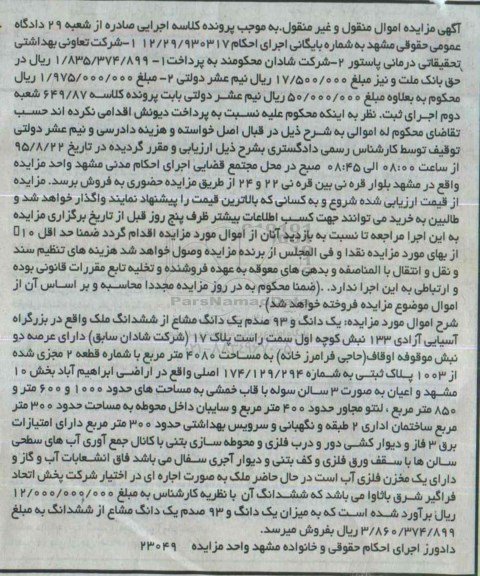 آگهی مزایده اموال منقول و غیر منقول.به موجب پرونده کلاسه اجرایی صادره از شعبه ۲۹ دادگاه
عمومی حقوقی مشهد به شماره بایگانی اجرای احکام ۱۲/۲۹/۹۳۰۳۱۷ ۱-شرکت تعاونی بهداشتی
تحقیقاتی درمانی پاستور ۲-شرکت شادان محکومند به پرداخت۱- ۱/۸۳۵/۳۷۴/۸۹۹ ریال در
حق بانک ملت و نیز مبلغ ۱۷/۵۰۰/۰۰۰ ریال نیم عشر دولتی ۲- مبلغ ۱/۹۷۵/۰۰۰/۰۰۰ ریال
محکوم به بعلاوه مبلغ ۵۰/۰۰۰/۰۰۰ ریال نیم عشر دولتی بابت پرونده کلاسه ۶۴۹/۸۷ شعبه
دوم اجرای ثبت. نظر به اینکه محکوم علیه نسبت به پرداخت دیونش اقدامی نکرده اند حسب
تقاضای محکوم له اموالی به شرح ذیل در قبال اصل خواسته و هزینه دادرسی و نیم عشر دولتی
توقیف توسط کارشناس رسمی دادگستری بشرح ذیل ارزیابی و مقرر گردیده در تاریخ ۹۵/۸/۲۲
از ساعت ۰۸:۰۰ الی ۰۸:۴۵ صبح در محل مجتمع قضایی اجرای احکام مدنی مشهد واحد مزایده
واقع در مشهد بلوار قره نی بین قره نی ۲۲ و ۲۴ از طریق مزایده حضوری به فروش برسد. مزایده
از قیمت ارزیابی شده شروع و به کسانی که بالاترین قیمت را پیشنهاد نمایند واگذار خواهد شد و
طالبین به خرید می توانند جهت کسب اطلاعات بیشتر ظرف پنج روز قبل از تاریخ برگزاری مزایده
به این اجرا مراجعه تا نسبت به بازدید آنان از اموال مورد مزایده اقدام گردد ضمنا حد اقل ۱۰
از بهای مورد مزایده نقدا و فی المجلس از برنده مزایده وصول خواهد شد هزینه های تنظیم سند
و نقل و انتقال با المناصفه و بدهی های معوقه به عهده فروشنده و تخلیه تابع مقررات قانونی بوده
و ارتباطی به این اجرا ندارد. .(ضمنا محکوم به در روز مزایده مجددا محاسبه و بر اساس آن از
اموال موضوع مزایده فروخته خواهد شد)
شرح اموال مورد مزایده: یک دانگ و ۹۳ صدم یک دانگ مشاع از ششدانگ ملک واقع در بزرگراه
آسیایی آزادی ۱۳۳ نبش کوچه اول سمت راست پلاک ۱۷ (شرکت شادان سابق) دارای عرصه دو
نبش موقوفه اوقاف(حاجی فرامرز خانه) به مساحت ۴۰۸۰ متر مربع با شماره قطعه ۲ مجزی شده
از ۱۰۰۳ پلاک ثبتی به شماره ۱۷۴/۱۲۹/۲۹۴ اصلی واقع در اراضی ابراهیم آباد بخش ۱۰
مشهد و اعیان به صورت ۳ سالن سوله با قاب خمشی به مساحت های حدود ۱۰۰۰ و ۶۰۰ متر و
۸۵۰ متر مربع ، لنتو مجاور حدود ۴۰۰ متر مربع و سایبان داخل محوطه به مساحت حدود ۳۰۰ متر
مربع ساختمان اداری ۲ طبقه و نگهبانی و سرویس بهداشتی حدود ۳۰۰ متر مربع دارای امتیازات
برق ۳ فاز و دیوار کشی دور و درب فلزی و محوطه سازی بتنی با کانال جمع آوری آب های سطحی
سالن ها با سقف ورق فلزی و کف بتنی و دیوار آجری سفال می باشد فاق انشعابات آب و گاز و
دارای یک مخزن فلزی آب است در حال حاضر ملک به صورت اجاره ای در اختیار شرکت پخش اتحاد
فراگیر شرق باتاوا می باشد که ششدانگ آن با نظریه کارشناس به مبلغ ۱۲/۰۰۰/۰۰۰/۰۰۰
ریال برآورد شده است که به میزان یک دانگ و ۹۳ صدم یک دانگ مشاع از ششدانگ به مبلغ
۳/۸۶۰/۳۷۴/۸۹۹ ریال بفروش میرسد.
دادورز اجرای احکام حقوقی و خانواده مشهد واحد مزایده ۲۳۰۴۹